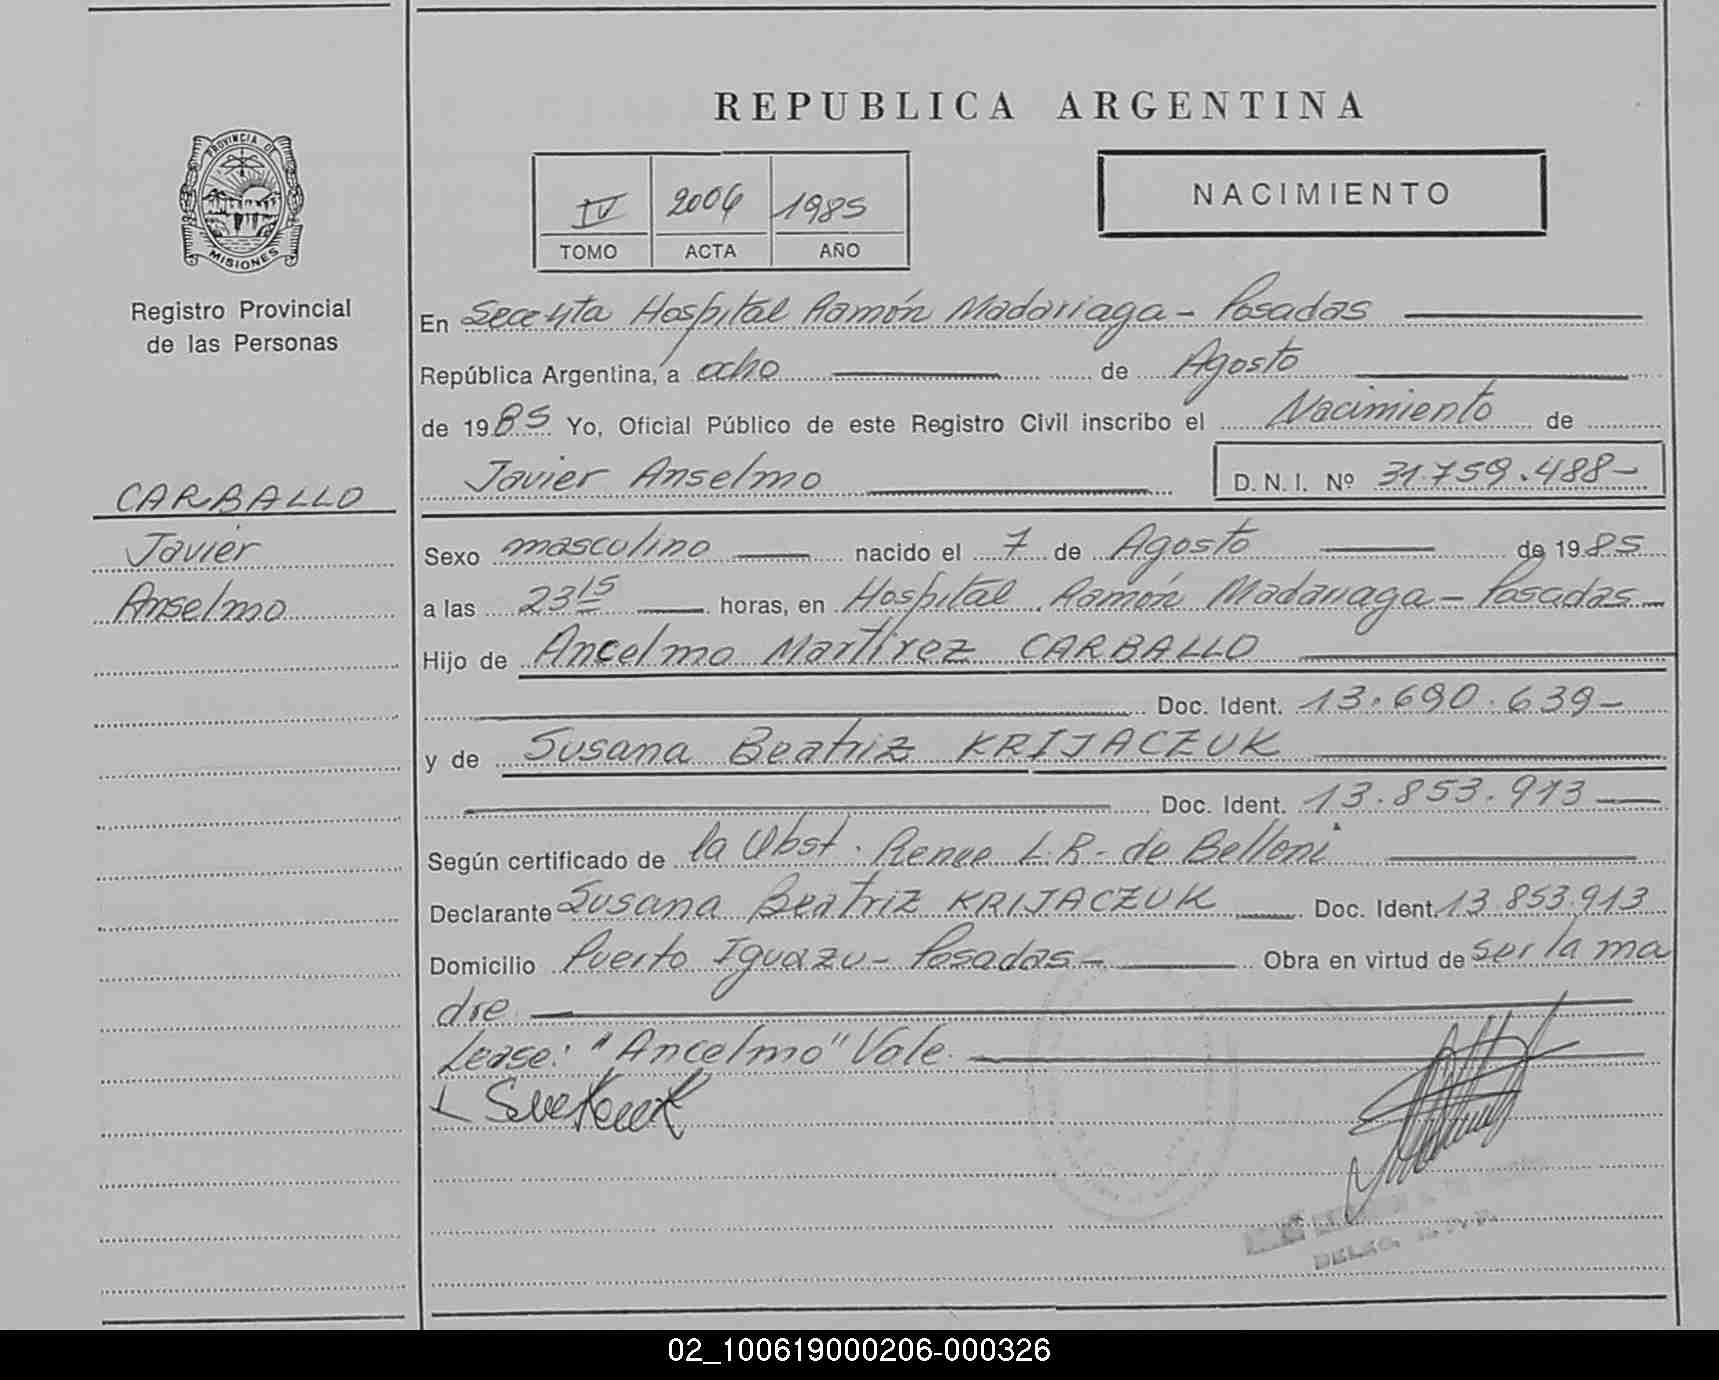 REPUBLICA ARGENTINA
PROVINCIA DE
MISIONES
Registro Provincial
de las Personas
IV 2006 1985
TOMO ACTA AÑO
NACIMIENTO
En Secc 4ta Hospital Ramón Madariaga - Posadas
República Argentina, a ocho de Agosto
de 1985 Yo, Oficial Público de este Registro Civil inscribo el Nacimiento de
Javier Anselmo D. N. I. Nº 31.759.488-
CARBALLO
Javier
Anselmo
Sexo masculino nacido el 7 de Agosto de 1985
a las 23 15 horas, en Hospital Ramón Madariaga - Posadas
Hijo de Ancelmo Martirez CARBALLO
Doc. Ident. 13.690.639-
y de Susana Beatriz KRIJACZUK
Doc. Ident. 13.853.913
Según certificado de la Obst. Renee L.R. de Belloni
Declarante Susana Beatriz KRIJACZUK Doc. Ident. 13.853.913
Domicilio Puerto Iguazu - Posadas - Obra en virtud de ser la ma
dre
Lease: "Ancelmo" Vale.
02_100619000206-000326